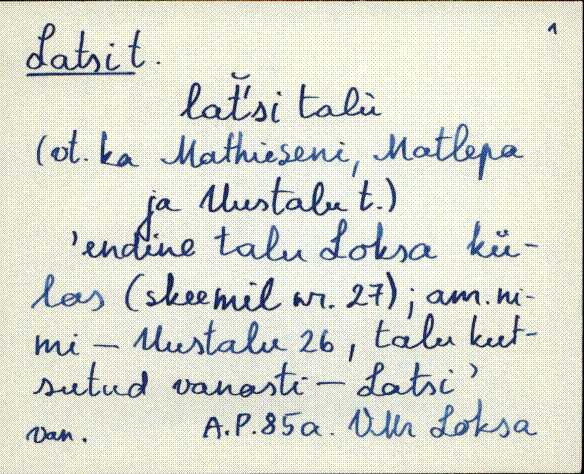 1
Latsi t.
lat̆'si talù
(vt. ka Mathieseni, Matlepa
ja Uustalu t.)
'endine talu Loksa kü-
las (skeemil nr. 27); am. ni-
mi – Uustalu 26, talu kut-
sutud vanasti – Latsi'
van. A.P. 85 a. VMr Loksa